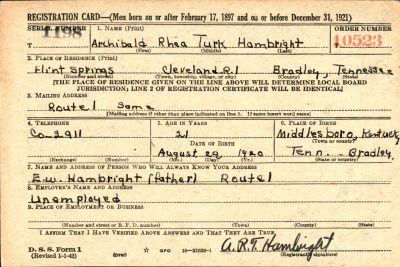 REGISTRATION CARD—(Men born on or after February 17, 1897 and on or before December 31, 1921)
SERIAL NUMBER 1. NAME (Print) ORDER NUMBER
T 1198 Archibald Rhea Turk Hambright 10523
2. PLACE OF RESIDENCE (Print)
Flint Springs Cleveland R.1 Bradley, Tennessee
(Number and street) (Town, township, village, or city) (County) (State)
[THE PLACE OF RESIDENCE GIVEN ON THE LINE ABOVE WILL DETERMINE LOCAL BOARD
JURISDICTION; LINE 2 OF REGISTRATION CERTIFICATE WILL BE IDENTICAL]
3. MAILING ADDRESS
Route 1 Same
[Mailing address if other than place indicated on line 2. If same insert word same]
4. TELEPHONE 5. AGE IN YEARS 6. PLACE OF BIRTH
Co-2911 21 Middlesboro, Kentucky
DATE OF BIRTH (Town or county)
August 29 1920 Tenn. Bradley
(Exchange) (Number) (Mo.) (Day) (Yr.) (State or country)
7. NAME AND ADDRESS OF PERSON WHO WILL ALWAYS KNOW YOUR ADDRESS
E.W. Hambright (father) Route 1
8. EMPLOYER'S NAME AND ADDRESS
Unemployed
9. PLACE OF EMPLOYMENT OR BUSINESS
(Number and street or R. F. D. number) (Town) (County) (State)
I AFFIRM THAT I HAVE VERIFIED ABOVE ANSWERS AND THAT THEY ARE TRUE.
D. S. S. Form 1
(Revised 1-1-42) GPO 16-21630-1 A.R.T. Hambright